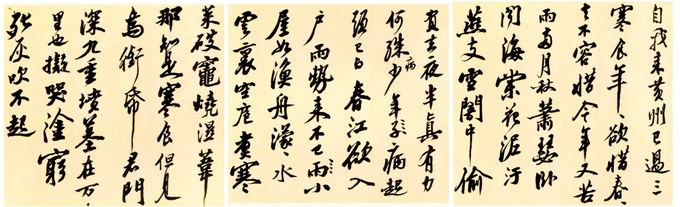 自我来黄州已過三
寒食年々欲惜春々
去不容惜今年又苦
雨兩月秋蕭瑟卧
聞海棠花泥汙
燕支雪闇中偷
負去夜半真有力
何殊病少年子病起
須已白春江欲入
戶雨勢来不已雨小
屋如漁舟濛々水
雲裏空庖煮寒
菜破竈燒濕葦
那知是寒食但見
烏銜帋君門
深九重墳墓在万
里也擬哭塗窮
死灰吹不起